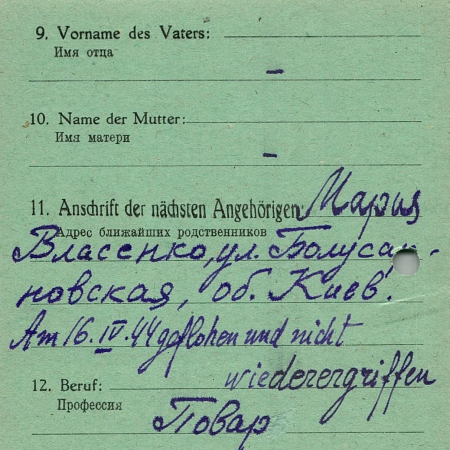 9. Vorname des Vaters:
Имя отца
–
10. Name der Mutter:
Имя матери
–
11. Anschrift der nächsten Angehörigen: Мария
Адрес ближайших родственников
Власенко, ул. Болуса-
новская, об. Киев.
Am 16.IV.44 geflohen und nicht
wiederergriffen
12. Beruf:
Профессия
Повар